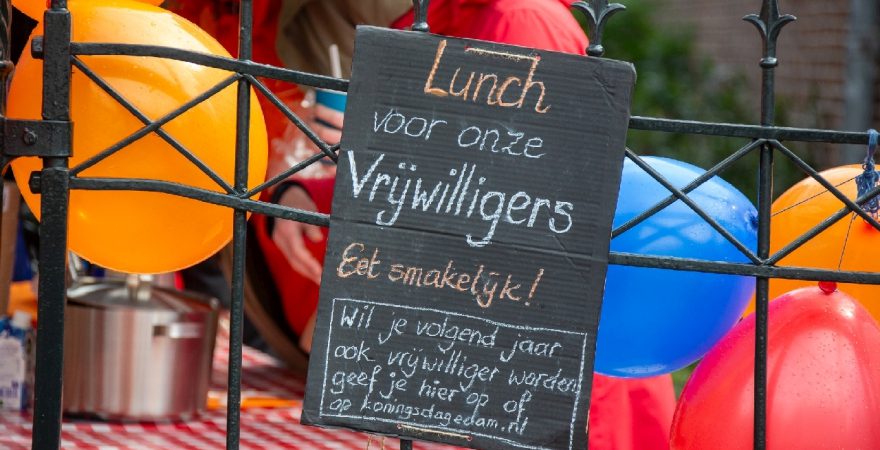 Lunch
voor onze
Vrijwilligers
Eet smakelijk!
Wil je volgend jaar
ook vrijwilliger worden
geef je hier op of
op koningsdagedam.nl